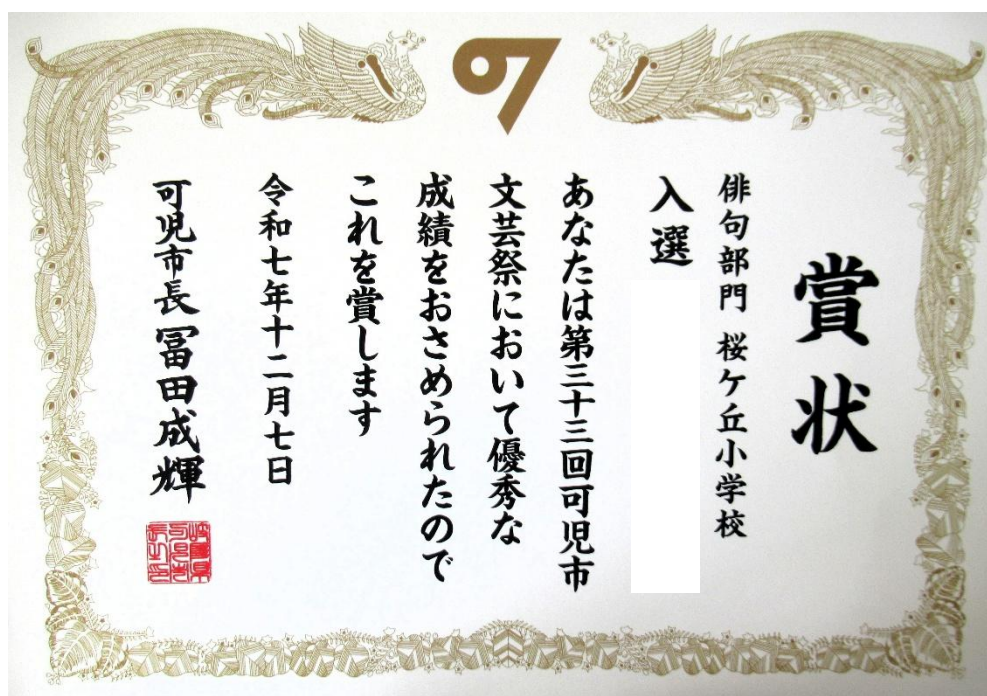 賞状
俳句部門 桜ケ丘小学校
入選
あなたは第三十三回可児市
文芸祭において優秀な
成績をおさめられたので
これを賞します
令和七年十二月七日
可児市長 冨田成輝